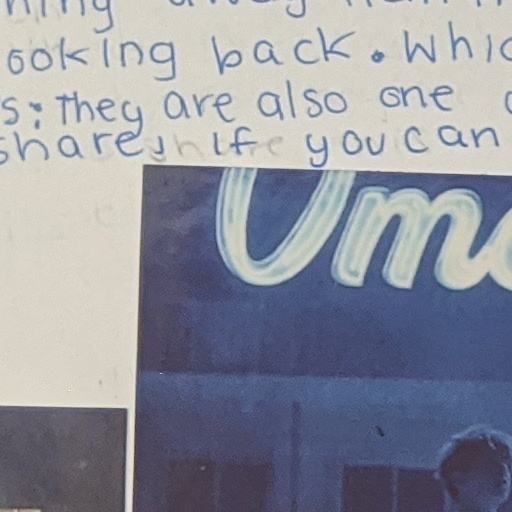 ooking back. Whic
s: They are also one
share, if you can
Um